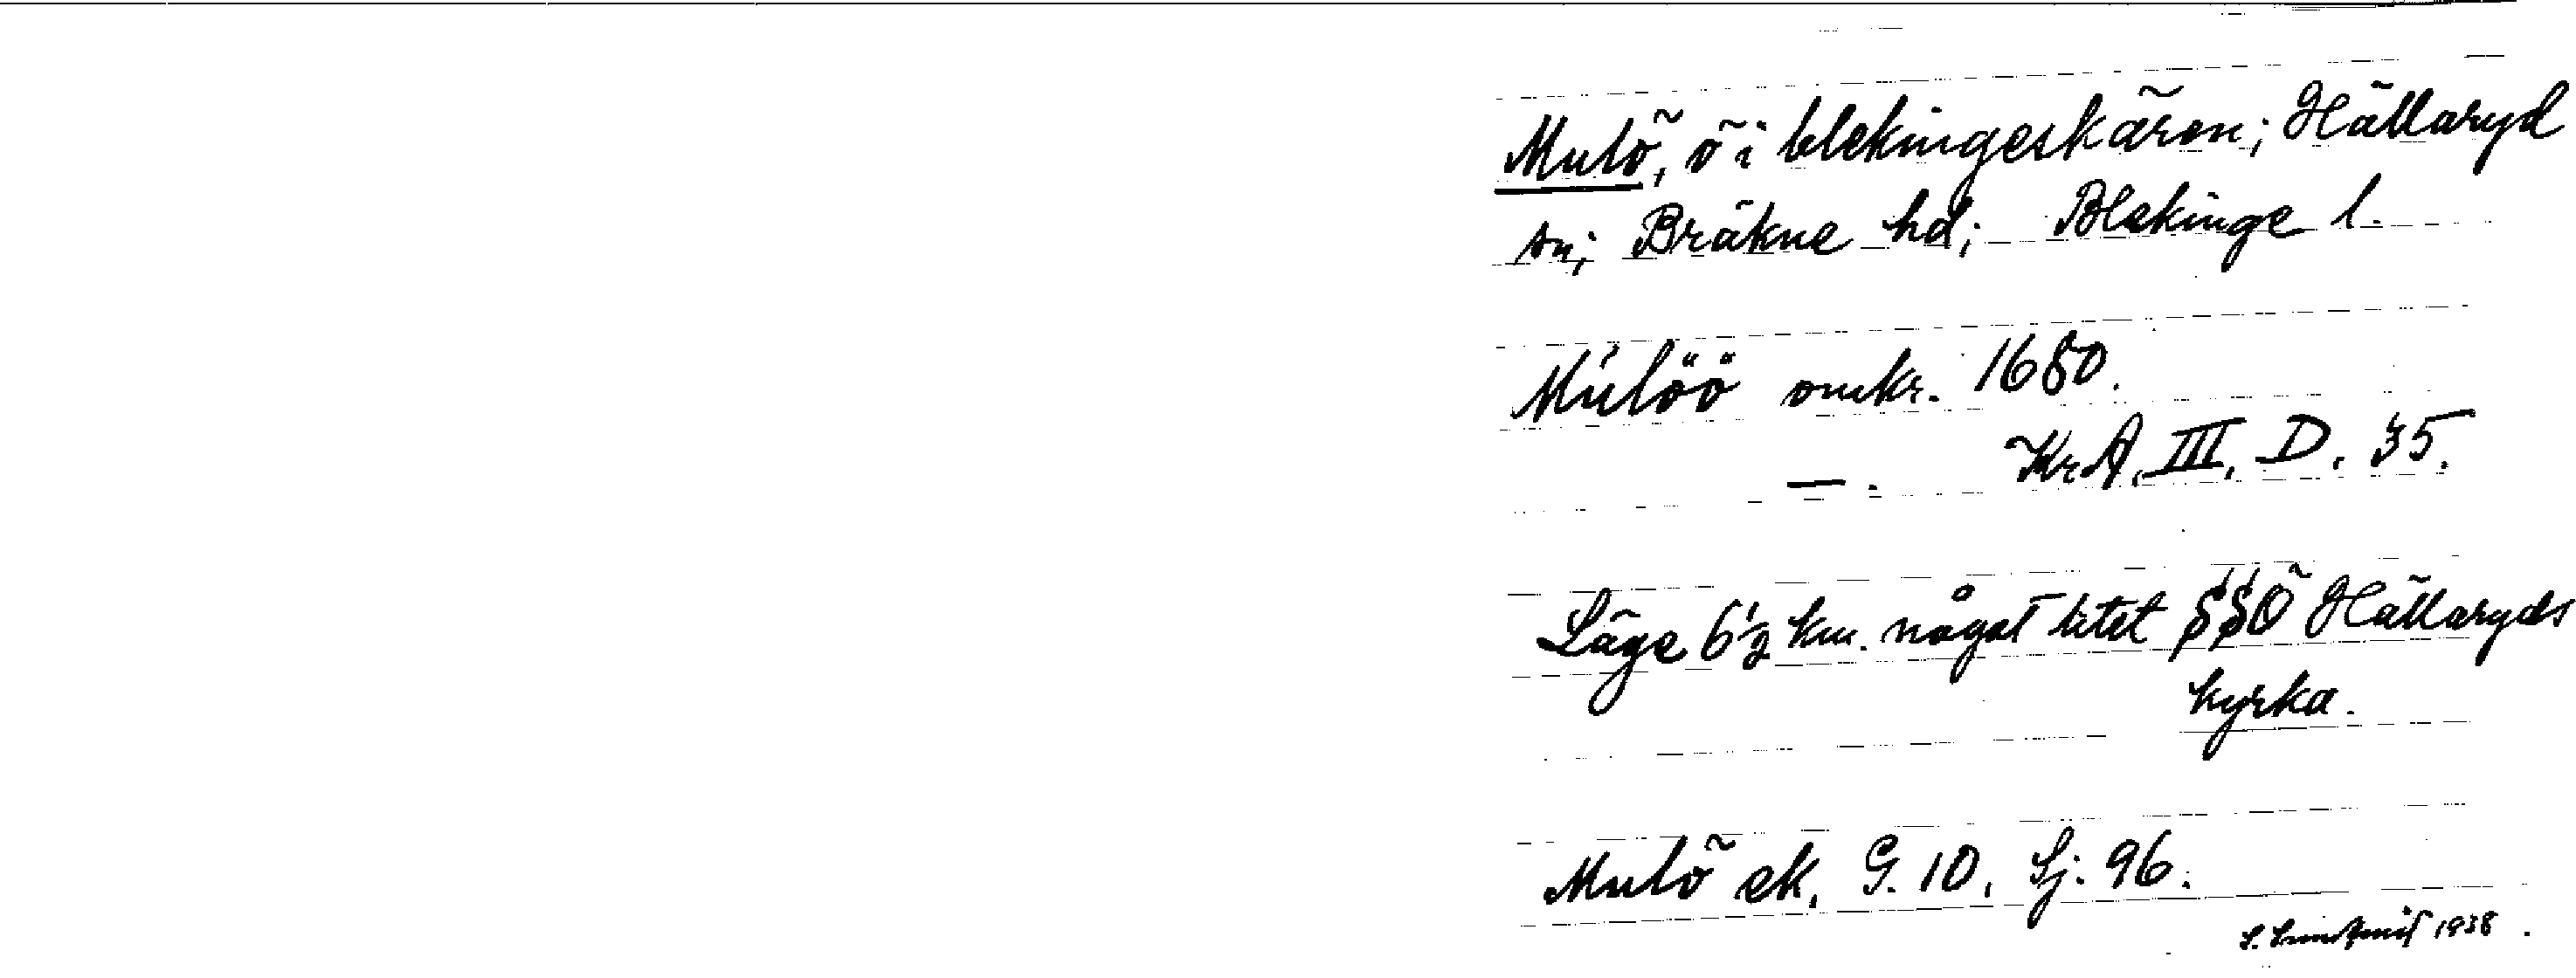 Mulö, ö i blekingeskären; Hällaryd
sn; Bräkne hd; Blekinge l.
Mulöö omkr. 1680.
—. KrA. III. D. 35.
Läge 6½ km. något litet SSÖ Hällaryds
kyrka.
Mulö ek. G. 10. Sj. 96.
1938.